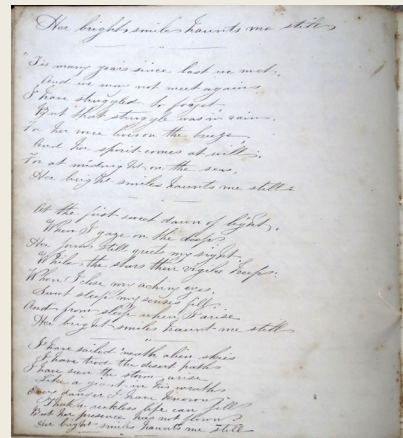 Her bright smile haunts me still
'Tis many years since last we met,
And we may not meet again
I have struggled to forget
But that struggle was in vain.
For her voice lives on the breeze
And her spirit comes at will;
For at midnight, on the seas,
Her bright smile haunts me still.
At the first sweet dawn of light,
When I gaze on the deep
Her form still greets my sight
While the stars their vigils keep.
When I close my aching eyes,
Sweet sleep my senses fill
And from sleep when I arise
Her bright smile haunts me still
I have sailed 'neath alien skies
I have trod the desert path
I have seen the storm arise
Like a giant in his wrath
Every danger I have known
That a reckless life can fill
But her presence has not flown
Her bright smile haunts me still